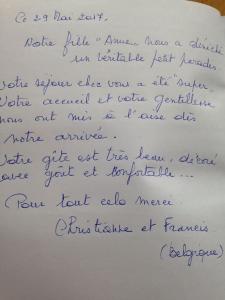 Ce 29 Mai 2017.
Notre fille "Anne" nous a déniché
un véritable petit paradis.
Votre séjour chez vous a été "super"
Votre accueil et votre gentillesse
nous ont mis à l'aise dès
notre arrivée.
Votre gîte est très beau, décoré
avec goût et confortable...
Pour tout cela merci
Christianne et Francis
(Belgique)